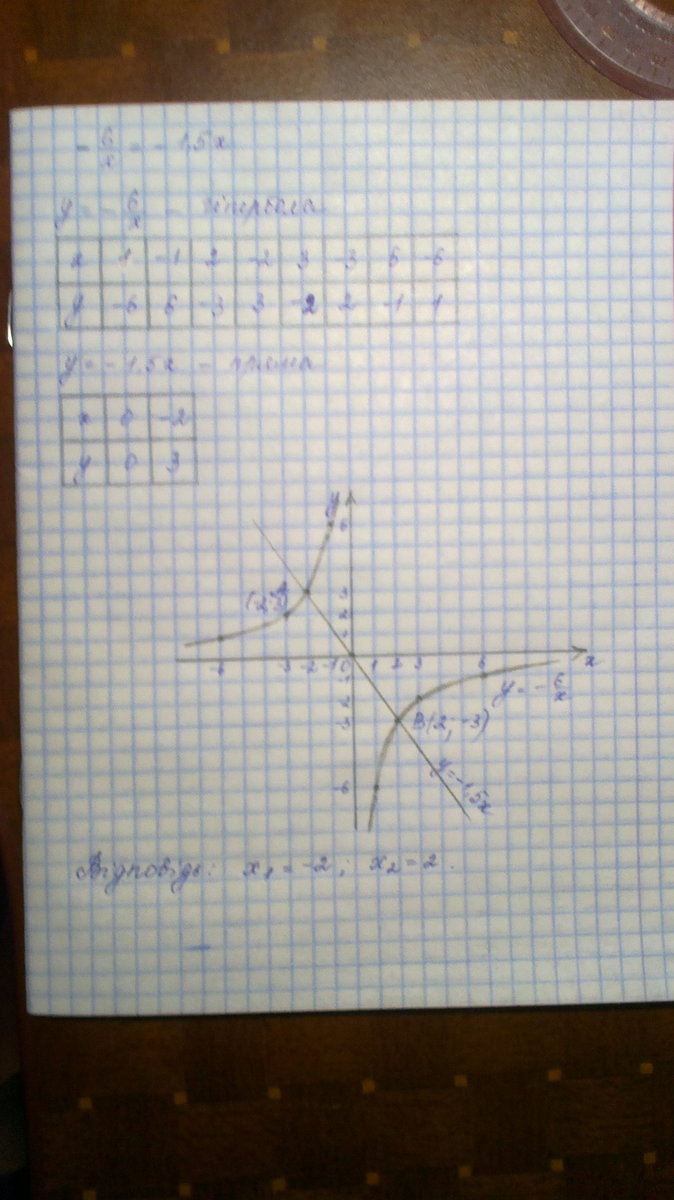 - 6/x = - 1,5x
y = - 6/x - гіпербола
x 1 -1 2 -2 3 -3 6 -6
y -6 6 -3 3 -2 2 -1 1
y = - 1,5x - пряма
x 0 -2
y 0 3
y
6
3
2
1
-6 -3 -2 -1 0 1 2 3 6 x
-1
-2
-3
-6
y = - 6/x
B(2; -3)
y = -1,5x
Відповідь: x₁ = -2; x₂ = 2.